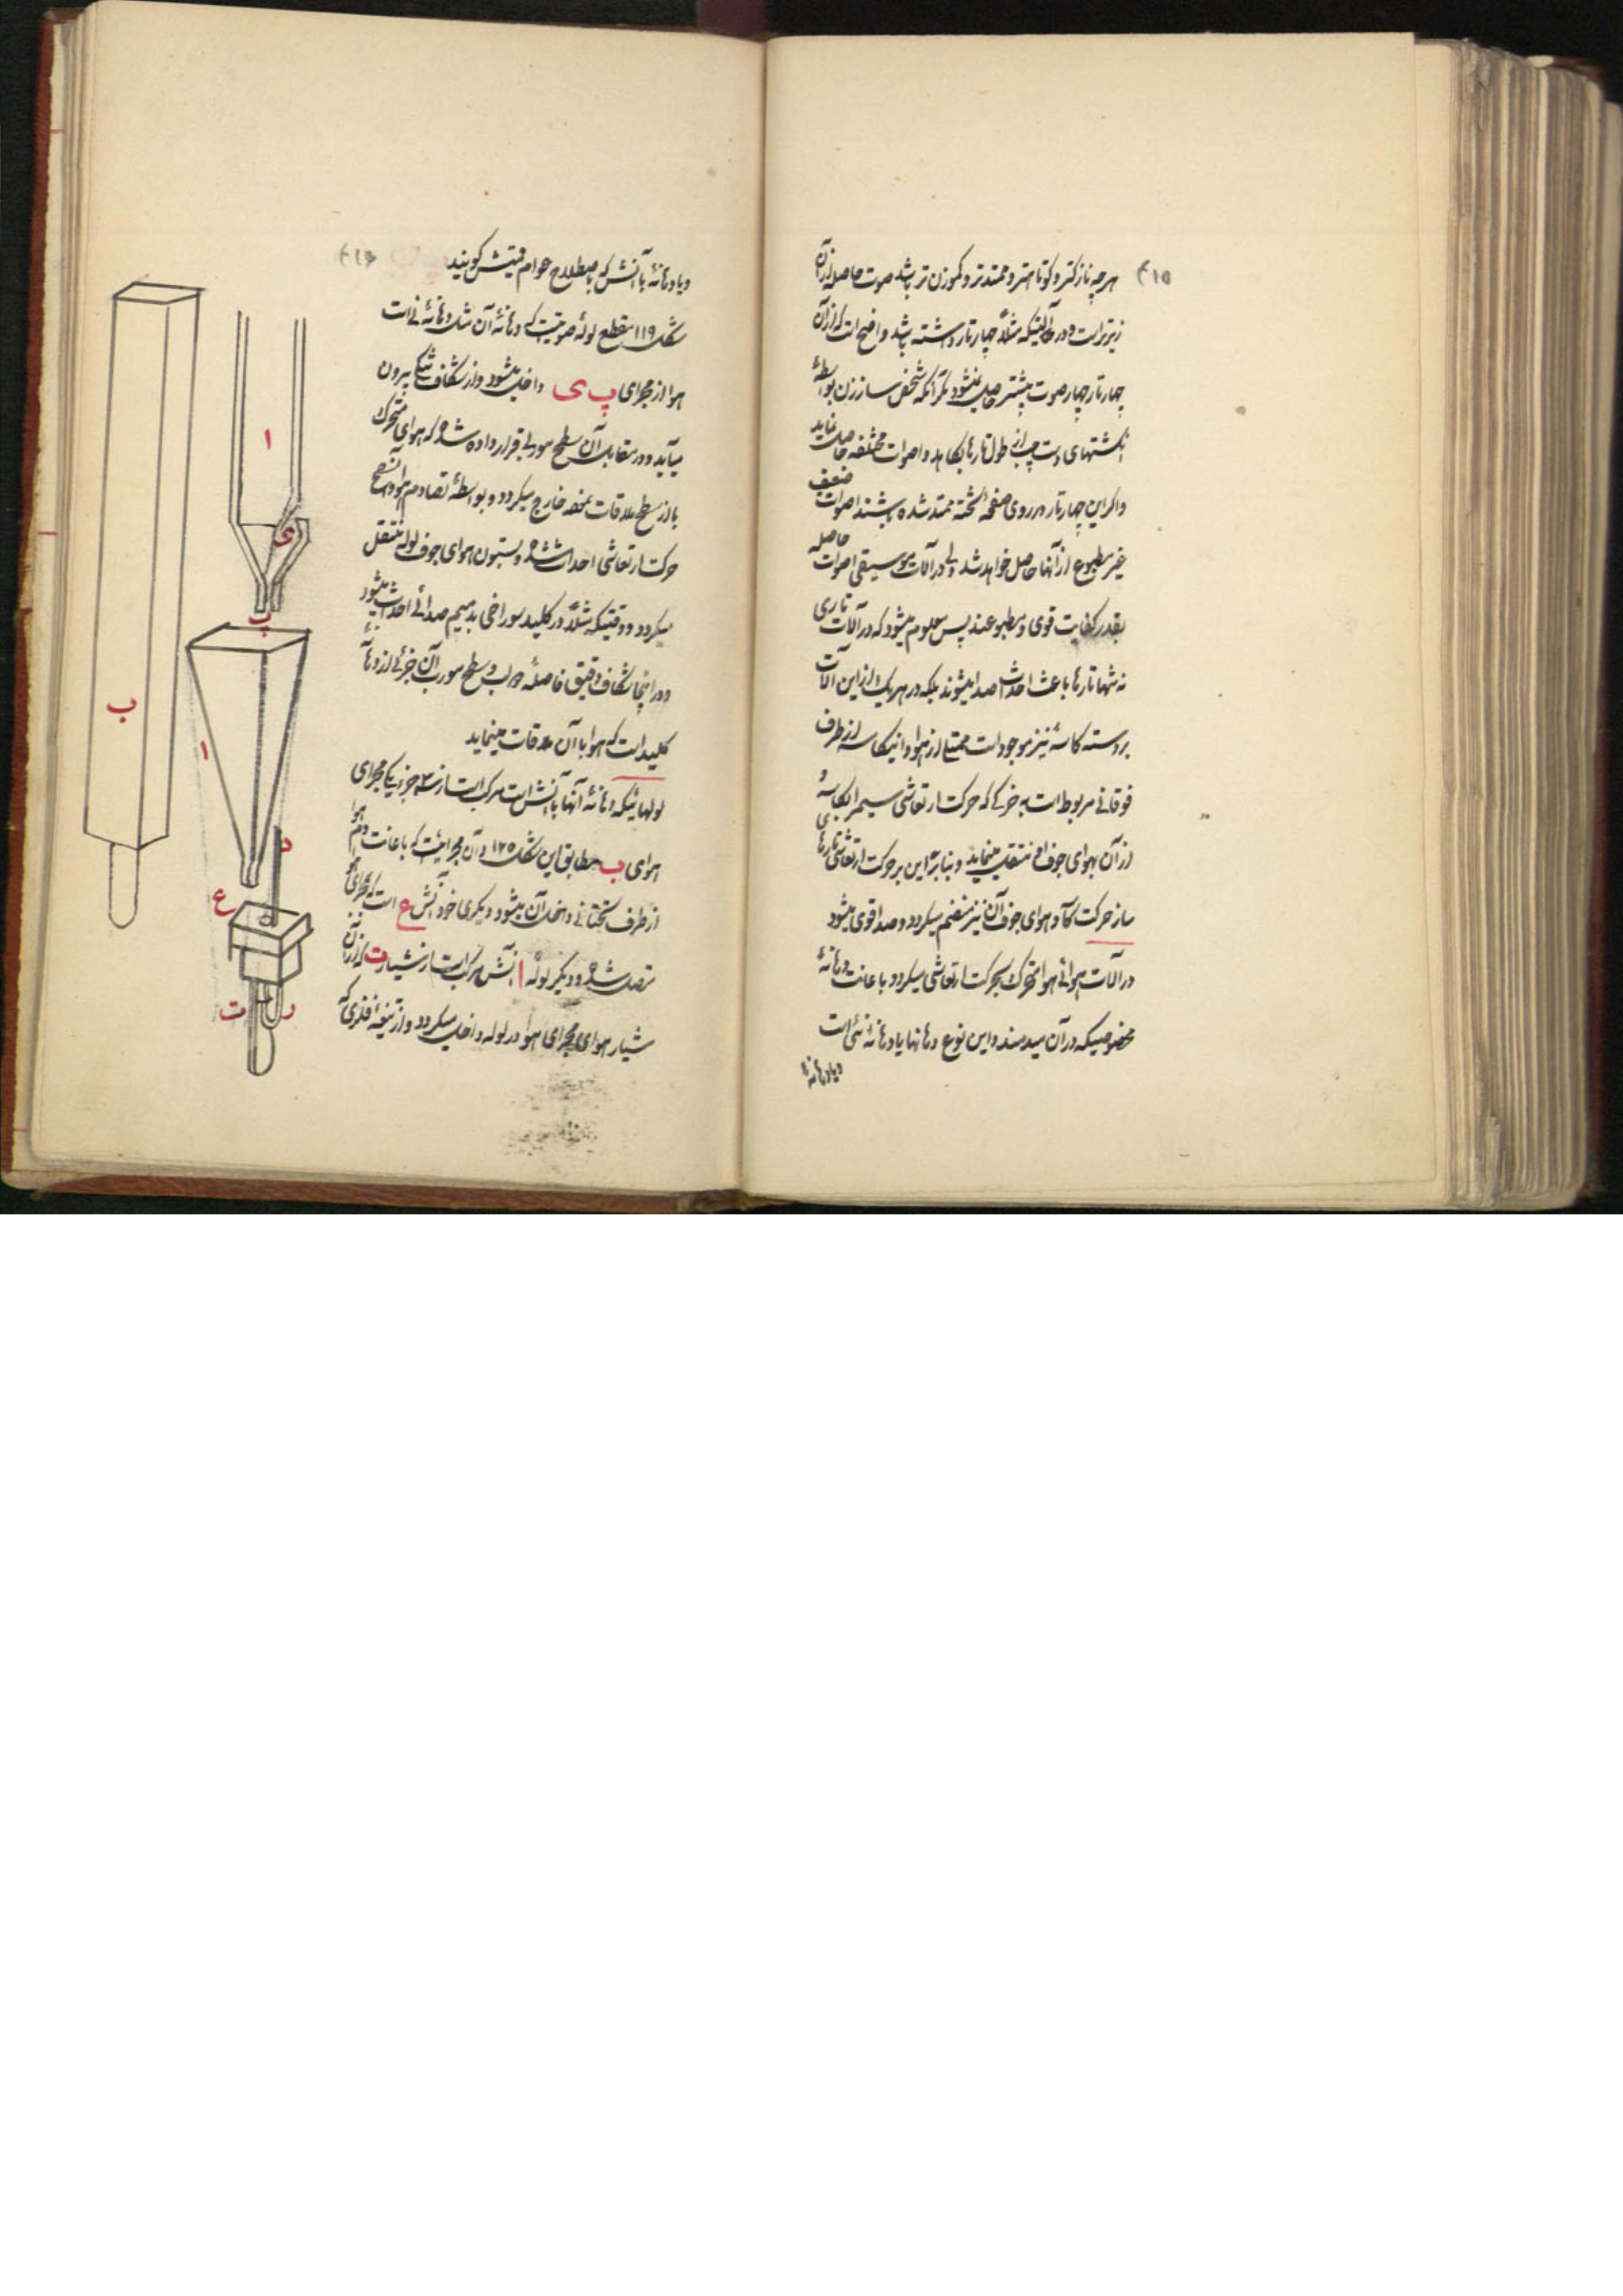 ۲۱۵
هر چه نازکتر و کوتاهتر و ممتدتر و کموزن تر باشد صوت حاصله از آن
زیرتر است و در آلتیکه مثلاً چهار تار داشته باشد واضح است که از آن
چهار تار چهار صوت بیشتر حاصل نمیشود مگر آنکه شخص ساززن بواسطهٔ
انگشتهای دست چپ از طول تارها بکاهد و اصوات مختلفه حاصل نماید
و اگر این چهار تار در روی صفحهٔ تخته ممتد شده باشند اصوات ضعیف
غیر مطبوع از آنها حاصل خواهد شد ولی در آلات موسیقی اصوات حاصله
بقدر کفایت قوی و مطبوعند پس معلوم میشود که در آلات تاری
نه تنها تارها باعث احداث صدا میشوند بلکه در هر یک از این آلات
بر دسته کاسهٔ نیز موجود است ممتلی از هوا و اینکاسه از طرف
فوقانی مربوط است به خرکی که حرکت ارتعاشی سیم را بکاسه و
از آن بهوای جوف او منتقل مینماید و بنابراین بر حرکت ارتعاشی تارهای
ساز حرکت کاسه و هوای جوف آن نیز منضم میگردد و صدا قوی میشود
در آلات هوائی هوا متحرک بحرکت ارتعاشی میگردد باعانت دهانهٔ
مخصوصیکه در آن میدمند و این نوع دهانها یا دهانهٔ نئی است
و یا دهانهٔ
۲۱۶
و یا دهانهٔ با آنش که باصطلاح عوام قمیش گویند
شکل ۱۱۹ مقطع لولهٔ صوتیست که دهانهٔ آن مثل دهانهٔ نی است
هوا از مجرای پ ی داخل میشود و از شکاف تنگی بیرون
میآید و در مقابل آن سطح موربی قرار داده شده که هوای متحرک
با لبهٔ سطح ملاقات نموده خارج میگردد و بواسطهٔ تصادم هوا و آن سطح
حرکت ارتعاشی احداث شده و بستون هوای جوف لوله منتقل
میگردد و وقتیکه مثلاً در کلید سوراخی بدمیم صدائی احداث میشود
و در اینجا شکاف دقیق فاصلهٔ دو لب و سطح مورب آن جزئی از دهانهٔ
کلید است که هوا با آن ملاقات مینماید
لولهائیکه دهانهٔ آنها با آنش است مرکب است از سه جزء یکی مجرای
هوای ب مطابق این شکل ۱۲۵ و آن مجرائیست که باعانت دم هوا
از طرف تحتانی داخل آن میشود دیگری خود آنش ع است که بمجرای هوا
متصل شده و دیگر لولهٔ ا آنش مرکب است از شیار ت که از آن
شیار هوای مجرای هوا در لوله داخل میگردد و از تیغهٔ فلزی که
ا
ی
پ
ب
ا
د
ع
ت
ر